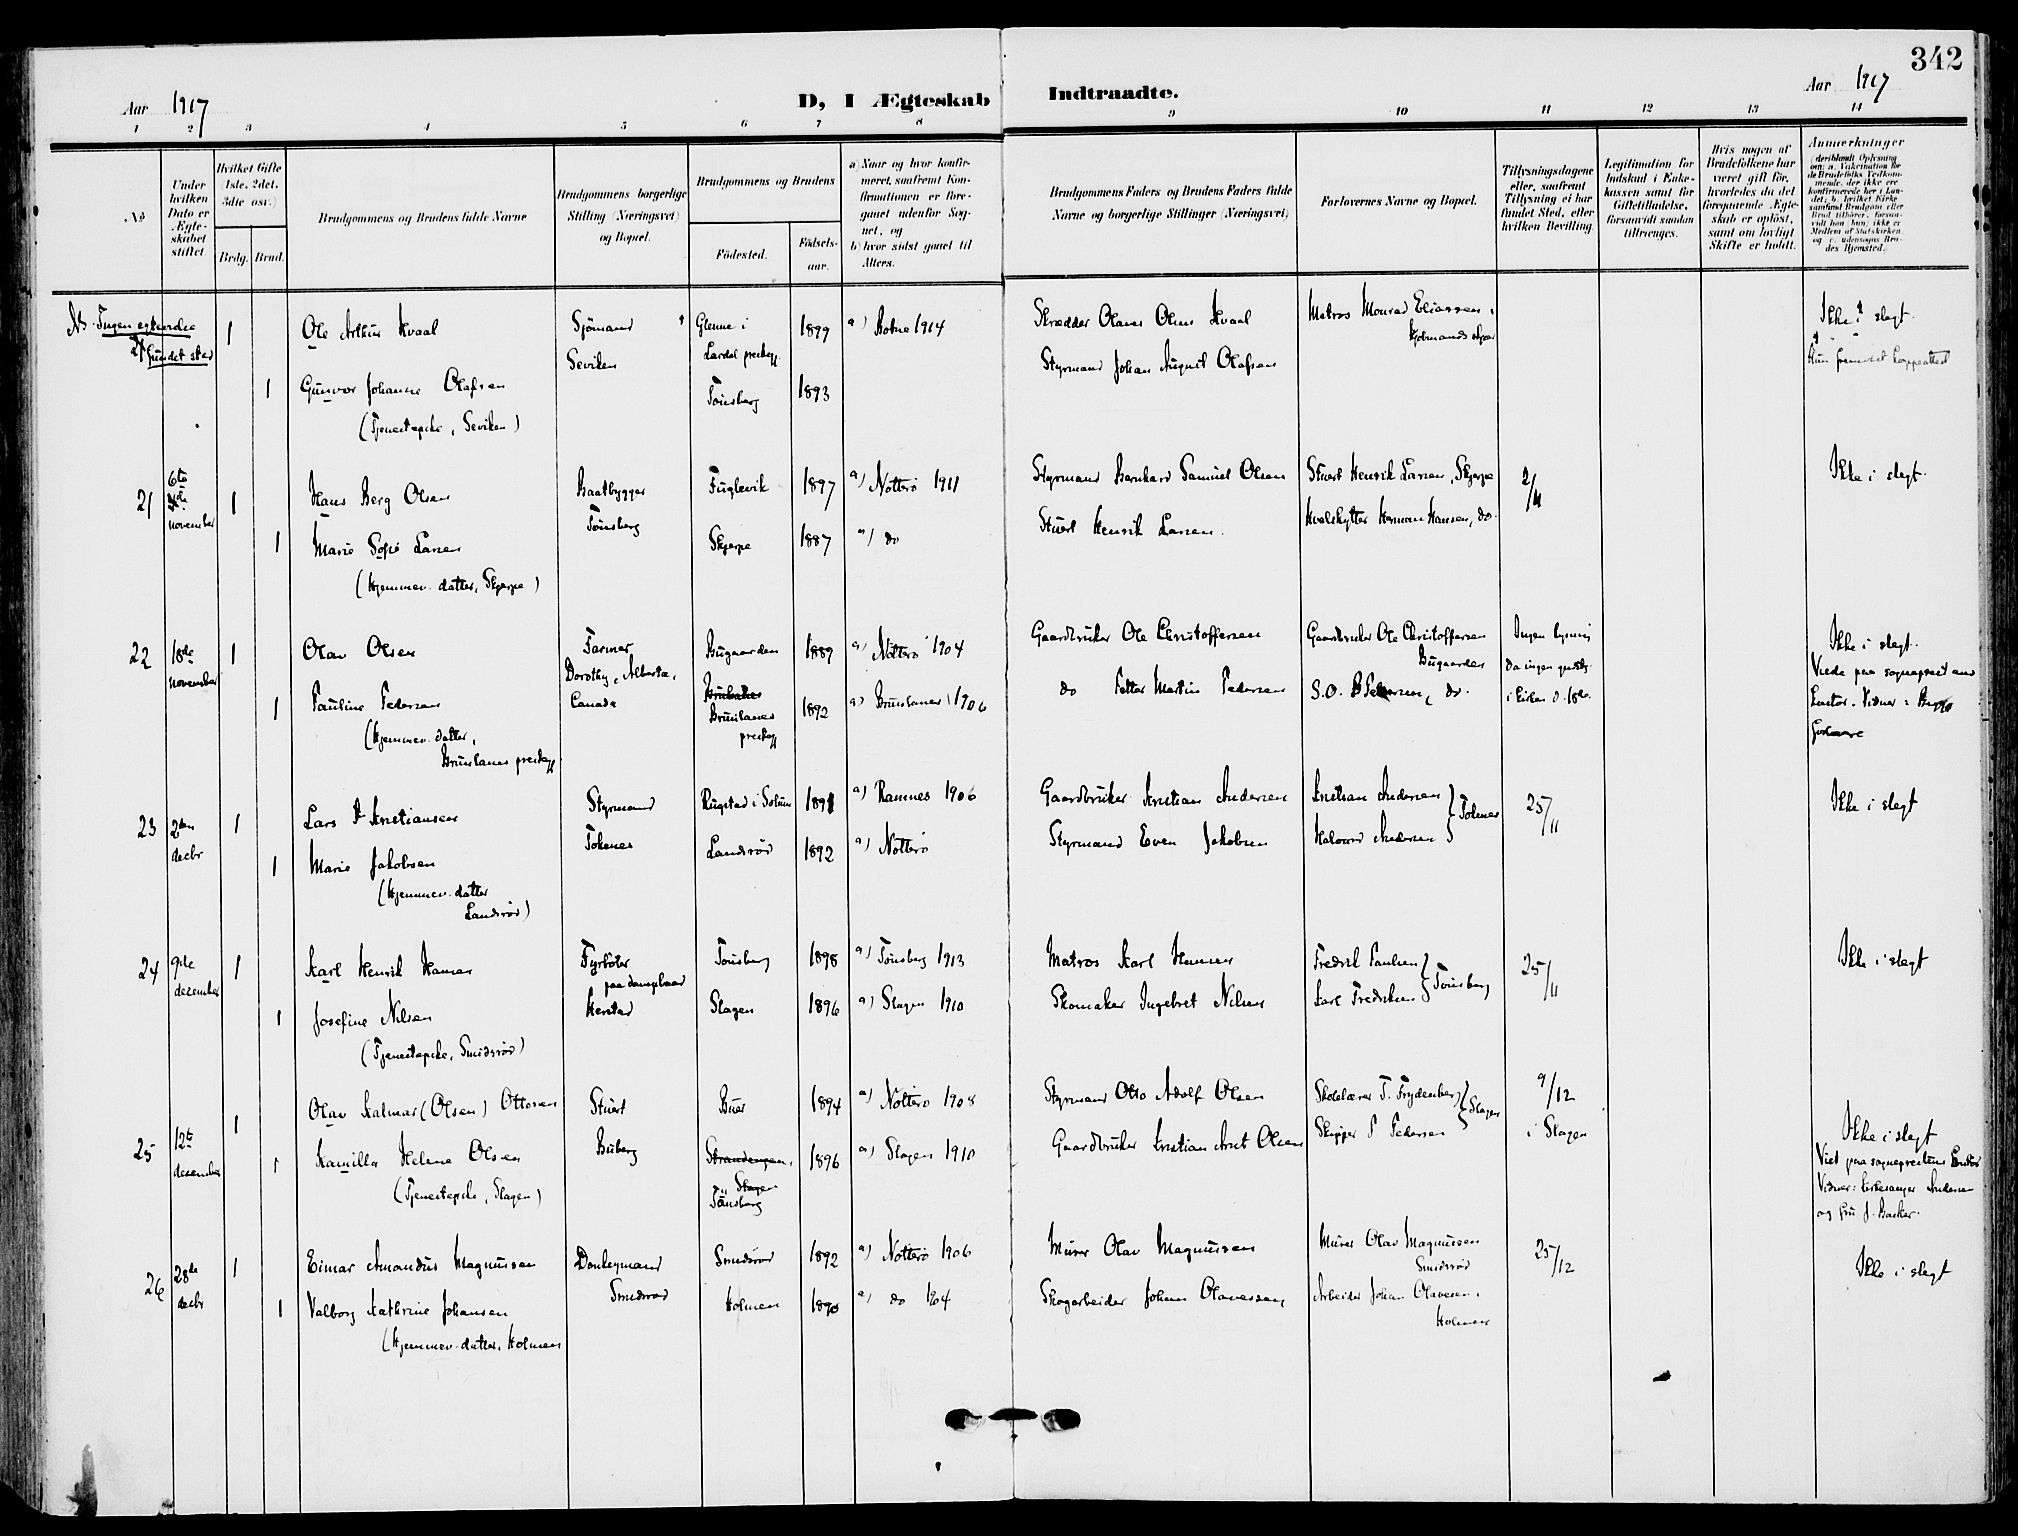 342
Aar 1917
D, I Ægteskab Indtraadte.
Aar 1917
1 2 3 4 5 6 7 8 9 10 11 12 13 14
No
Under hvilken Dato er Ægteskabet stiftet.
Hvilket Gifte 1ste, 2det, 3die osv.)
Brdg. Brud.
Brudgommens og Brudens fulde Navne
Brudgommens borgerlige Stilling (Næringsvei) og Bopæl.
Brudgommens og Brudens
Fødested.
Fødselsaar.
a) Naar og hvor konfirmeret, saafremt Konfirmationen er foregaaet udenfor Sognet, og
b) hvor sidst gaaet til Alters.
Brudgommens Faders og Brudens Faders fulde Navne og borgerlige Stillinger (Næringsvei)
Forlovernes Navne og Bopæl.
Tillysningsdagene eller, saafremt Tillysning ei har fundet Sted, efter hvilken Bevilling.
Legitimation for Indskud i Enkekassen samt for Giftetilladelse, forsaavidt saadan tiltrænges.
Hvis nogen af Brudefolkene har været gift før, hvorledes da det foregaaende Ægteskab er opløst, samt om lovligt Skifte er holdt.
Anmerkninger
NB. Ingen egtevielse
fundet sted
1 Ole Arthur Kvaal
Sjømand
Seviken
Glenne i
Lardal prestegj
1899
a) Botne 1914
Skrædder Olaus Olsen Kvaal
Matros Monrad Eliassen,
Ikke i slegt.
1 Gunvor Johanne Olafsen
(Tjenestepike, Seviken)
Tønsberg
1893
Styrmand Johan August Olafsen
21
6te
november
1 Hans Berg Olsen
Baatbygger
Tønsberg
Fuglevik
1897
a) Nøtterø 1911
Styrmand Bernhard Samuel Olsen
Stuert Henrik Larsen, Skjerpe
2/11
Ikke i slegt.
1 Marie Sofie Larsen
(Hjemmev. datter, Skjerpe)
Skjerpe
1887
a) do
Stuert Henrik Larsen.
Hvalskytter Herman Hansen, do.
22
18de
november
1 Olav Olsen
Farmer
Dorothy, Alberta,
Canada
Bugaarden
1889
a) Nøtterø 1904
Gaardbruker Ole Christoffersen
Gaardbruker Ole Christoffersen
Bugaarden
Ingen lysning
da ingen
i kirken d. 18de.
Ikke i slegt.
Viede paa sogneprest
Lector. Vidner: Begge
forlovere
1 Pauline Pedersen
(Hjemmev. datter,
Brunlanes prestegj)
Brunlanes
prestegj
1892
a) Brunlanes 1906
do Petter Martin Pedersen
S. O. Pedersen, do.
23
2den
decbr
1 Lars A Kristiansen
Styrmand
Tokenes
Rugstad i Solum
1891
a) Ramnes 1906
Gaardbruker Kristian Andersen
Kristian Andersen
Tokenes
25/11
Ikke i slegt
1 Marie Jakobsen
(Hjemmev. datter
Landsrød)
Landsrød
1892
a) Nøtterø
Styrmand Even Jakobsen
Halvard Andersen
24
9de
dezember
1 Karl Henrik Hansen
Fyrbøter
paa dampbaad
Herstad
Tønsberg
1898
a) Tønsberg 1913
Matros Karl Hansen
Fredrik Paulsen
Tønsberg
25/11
Ikke i slegt
1 Josefine Nilsen
(Tjenestepike, Smidsrød)
Slagen
1896
a) Slagen 1910
Skomaker Ingebret Nilsen
Karl Fredriksen
25
12te
dezember
1 Olav Kalmar (Olsen) Ottosen
Stuert
Buberg
Buer
1894
a) Nøtterø 1908
Styrmand Otto Adolf Olsen
Skolelærer T. Frydenberg
Slagen
9/12
i Slagen
Ikke i slegt
Viet paa sogneprestens kontor
Vidner: kirkesanger Andersen
og fru J. Backer.
1 Kamilla Helene Olsen
(Tjenestepike, Slagen)
Strandengen,
Slagen
Tønsberg
1896
a) Slagen 1910
Gaardbruker Kristian Anet Olsen
Skipper P Pedersen
26
28de
decbr
1 Eimar Amandus Magnussen
Donkeymand
Smidsrød
Smidsrød
1892
a) Nøtterø 1906
Murer Olav Magnussen
Murer Olav Magnussen
Smidsrød
25/12
Ikke i slegt
1 Valborg Kathrine Johansen
(Hjemmev. datter, Holmen
Holmen
1890
a) do 1904
Skogarbeider Johan Olavesen,
Arbeider Johan Olavesen,
Holmen